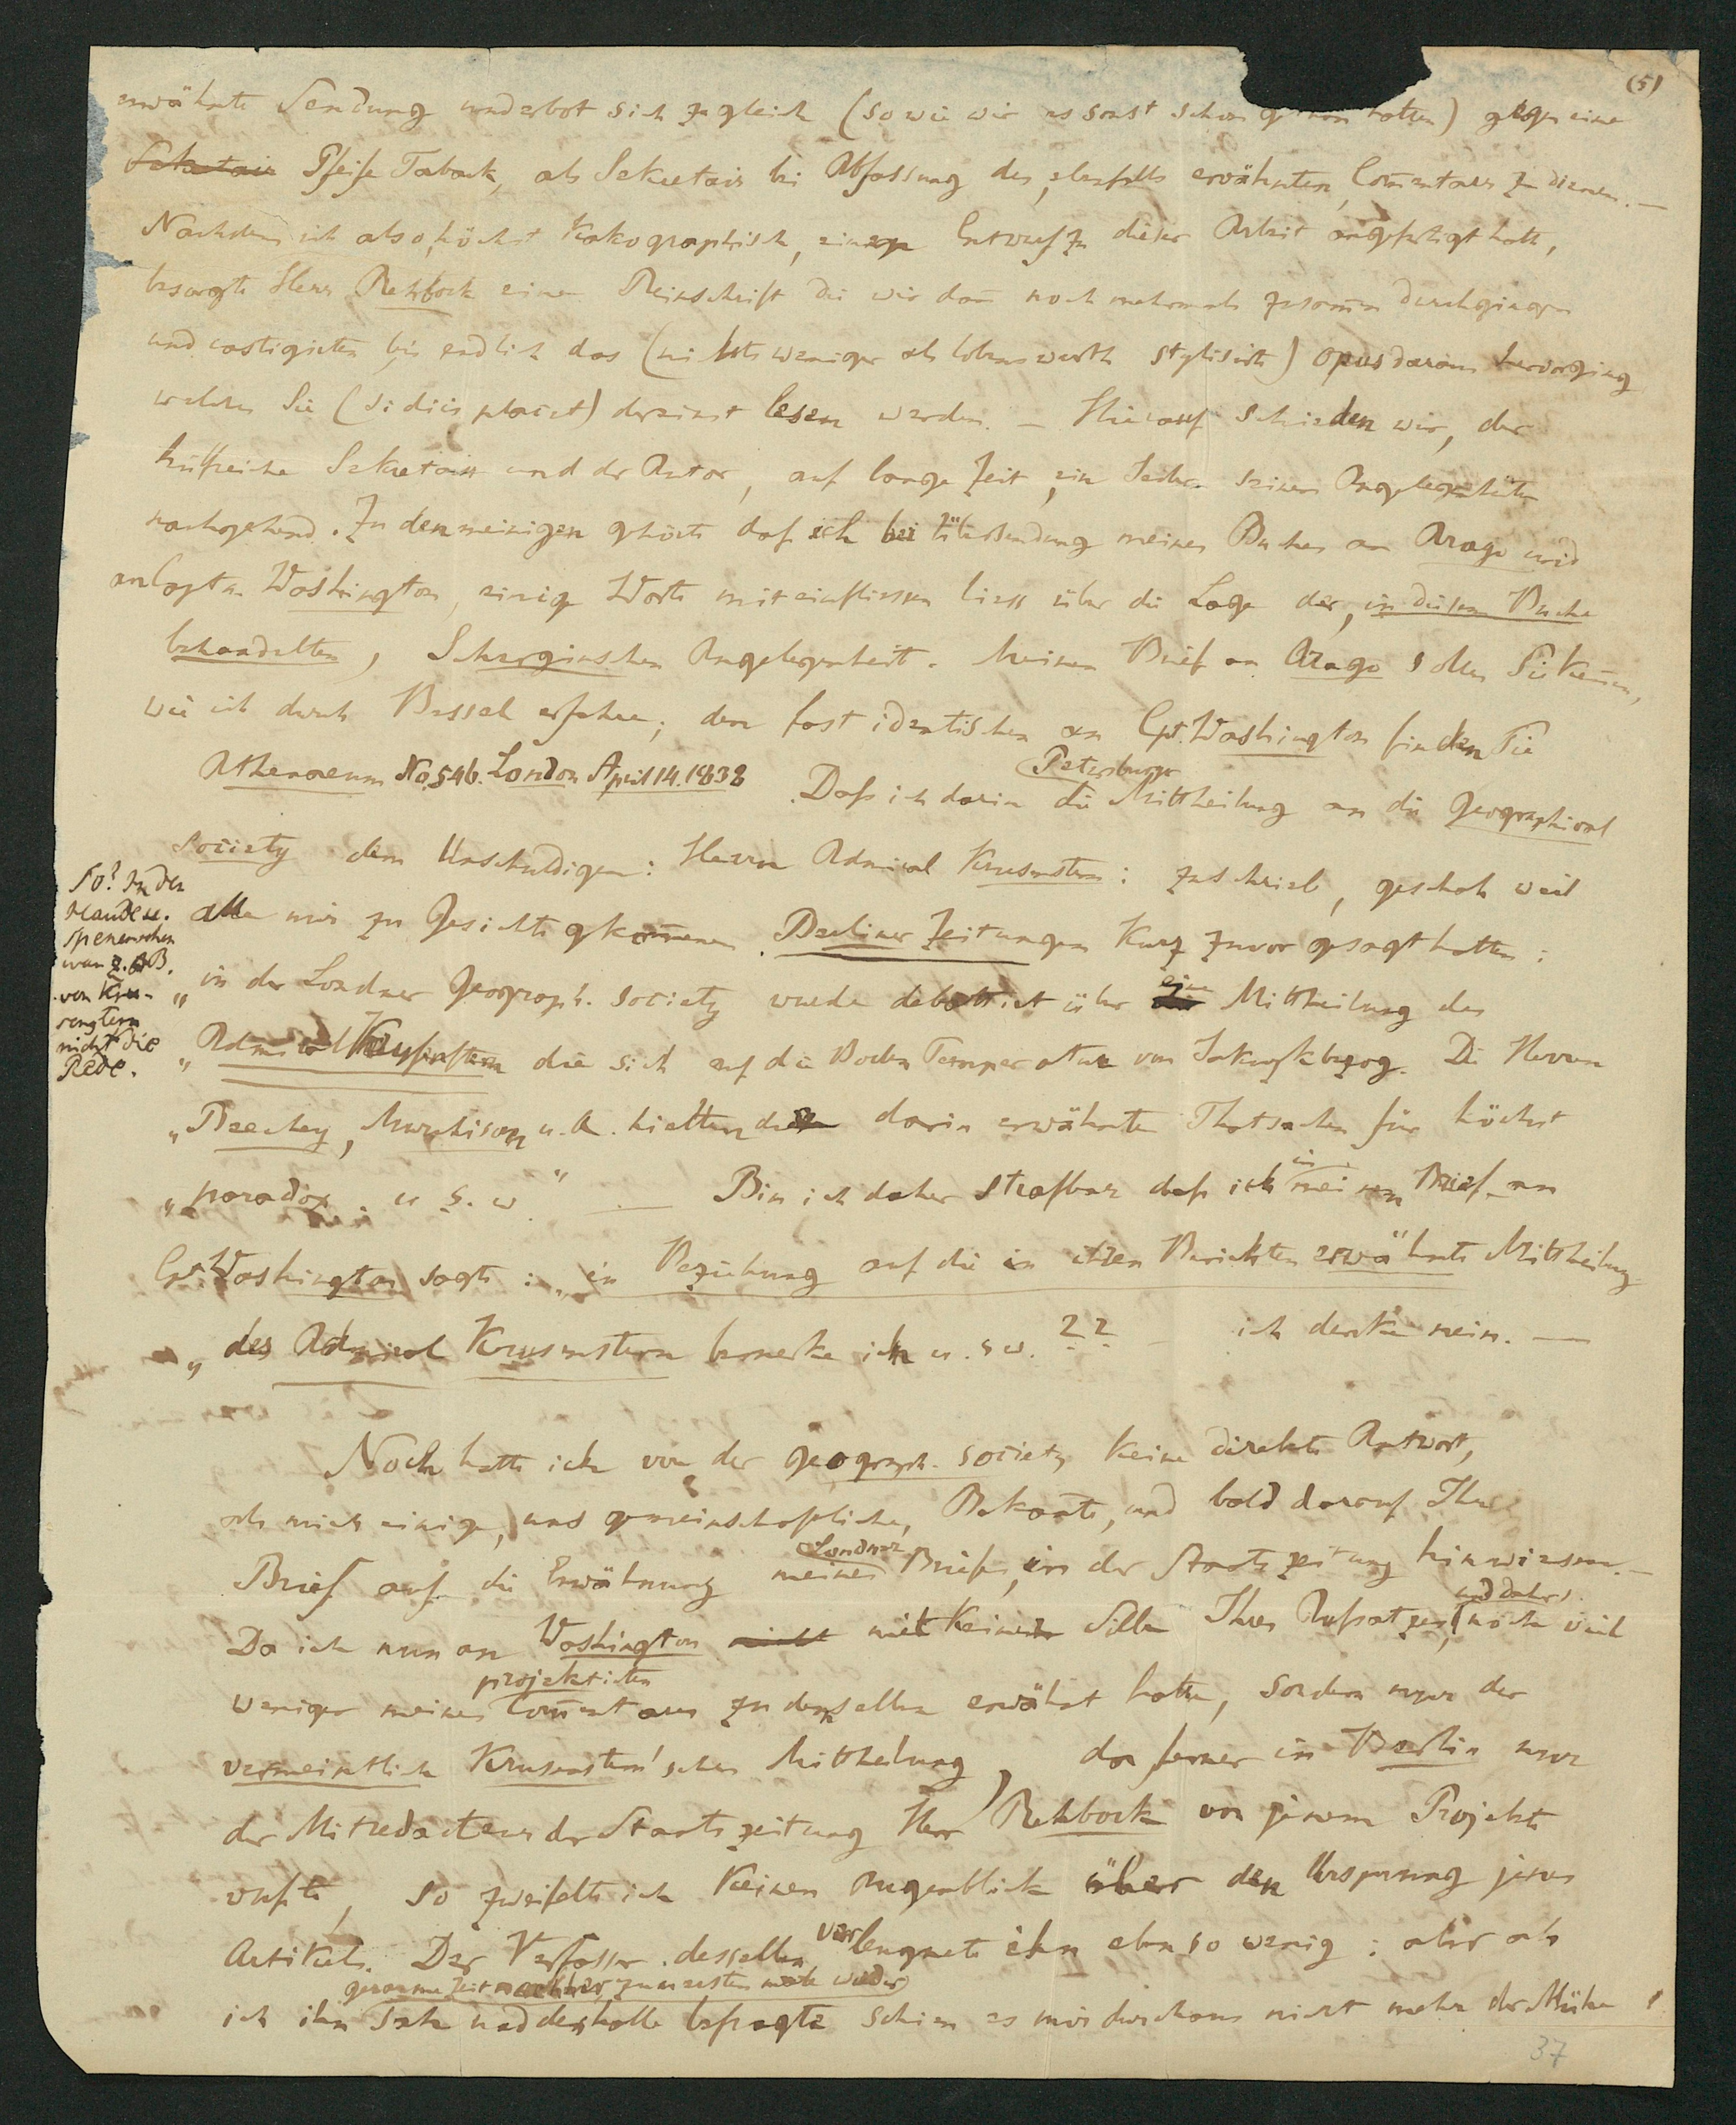 (5)
erwähnte Sendung und erbot sich zugleich (so wie wir es sonst schon gethan hatten) gegen eine
Sekretair Pfeife Taback, als Sekretair bei Abfassung des, ebenfalls erwähnten, Com̅entares zu dienen. —
Nachdem ich also, höchst kakographisch, einen Entwurf zu dieser Arbeit angefertigt hatte,
besorgte Herr Rehbock eine Reinschrift die wir dan̅ noch mehrmals zusam̅en durchgingen
und castigirten bis endlich das (nichts weniger als lobenswerth stylisirte) opus daraus hervorging
welches Sie (si diis placet) dereinst lesen werden. — Hierauf schieden wir, der
hülfreiche Sekretair und der Autor, auf lange Zeit, ein Jeder seinen Angelegenheiten
nachgehend. Zu den meinigen gehörte daß ich bei Übersendung meines Buches an Arago und
an Capt. Washington, einige Worte mit einfliessen liess über die Lage der, in diesem Buche
behandelten, Scherginschen Angelegenheit. Meinen Brief an Arago sollen Sie ken̅en,
wie ich durch Bessel erfahre; den fast identischen an Cpt. Washington finden Sie
Athenaeum No. 546. London April 14. 1838. Daß ich darin die Petersburger Mittheilung an die geographical
society dem Unschuldigen: Herrn Admiral Krusenstern: zuschrieb, geschah weil
alle mir zu Gesichte gekom̅enen Berliner Zeitungen kurz zuvor gesagt hatten:
„in der Londner Geograph. society wurde debattirt über eine Mittheilung des
„Admiral Krusenstern die sich auf die Boden Temperatur von Jakuzk bezog. Die Herren
„Beechey, Murchison u. A. hielten die darin erwähnte Thatsachen für höchst
„paradox. u. s. w." — Bin ich daher strafbar daß ich in meinem Brief an
Cpt. Washington sagte: „in Beziehung auf die in ihren Berichten erwähnte Mittheilung
„des Admiral Krusenstern bemerke ich u. s. w. ?? — ich denke nein. —
So? In der
Haude u.
Spenerschen
war z. B.
von Kru-
senstern
nicht die
Rede.
Noch hatte ich von der geograph. society keine direkte Antwort,
als mich einige, uns gemeinschaftliche, Bekan̅te, und bald darauf Ihr
Brief auf die Erwähnung meines Londner Briefes, in der Staatszeitung hinwiesen. —
Da ich nun an Washington nicht mit keiner Silbe Ihres Aufsatzes, (und daher) noch viel
weniger meines projektirten Com̅entares zu demselben erwähnt hatte, sondern nur der
vermeintlich Krusenstern'schen Mittheilung, da ferner in Berlin nur
der Mitredacteur der Staatszeitung Herr Rehbock von jenem Projekte
wußte, so zweifelte ich keinen Augenblick über den Ursprung jenes
Artikels. Der Verfasser desselben verleugnete ihn eben so wenig: aber als
ich ihn geraume Zeit nachher, zum ersten male wieder sah und deshalb befragte schien es mir durchaus nicht mehr der Mühe
37